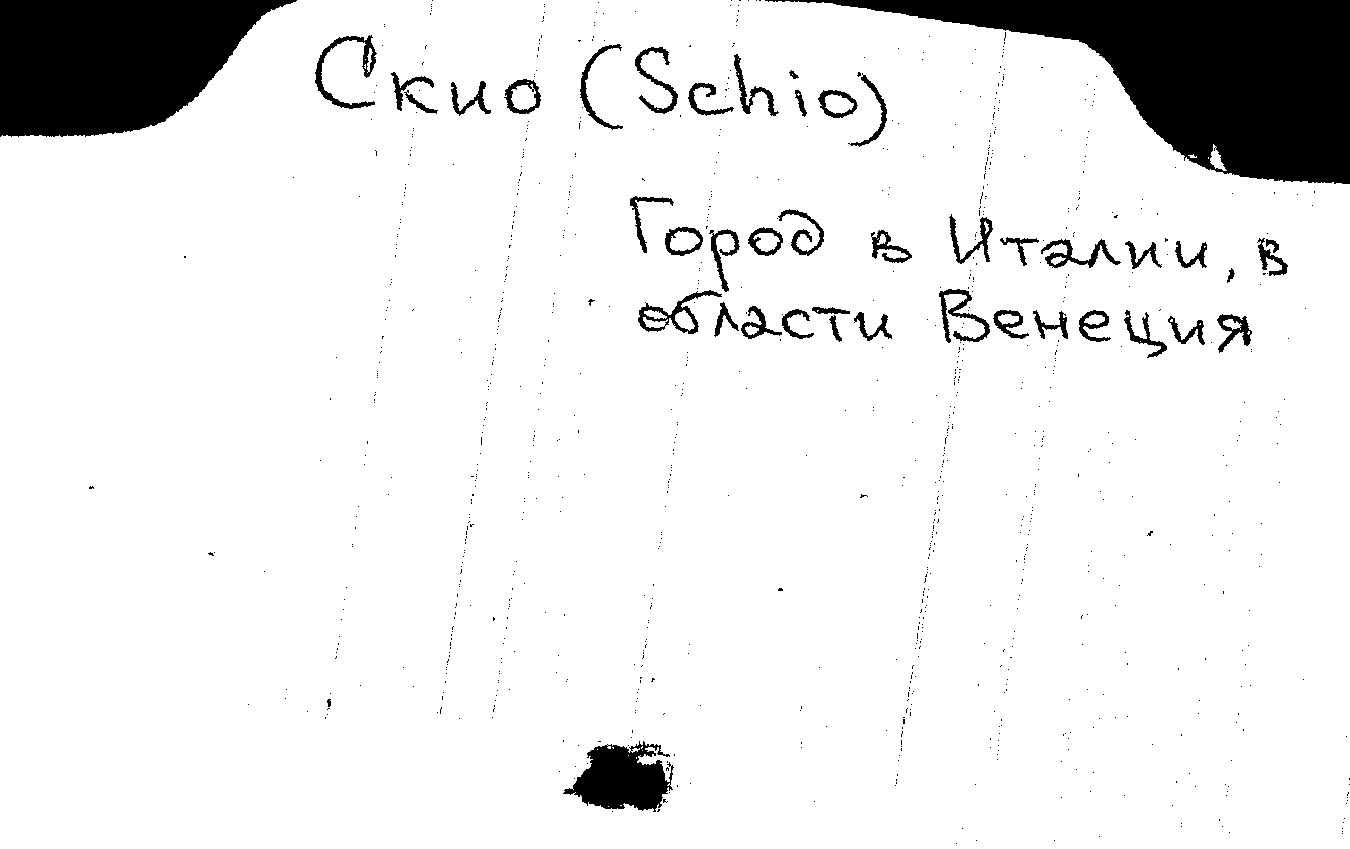 Скио (Schio)
Город в Италии, в
области Венеция